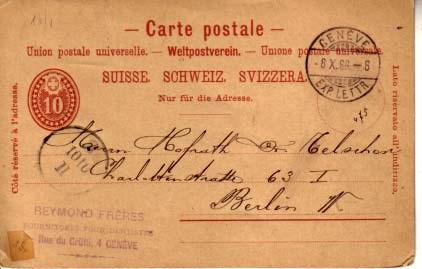 — Carte postale —
Union postale universelle. — Weltpostverein. — Unione postale universale.
SUISSE. SCHWEIZ. SVIZZERA.
Nur für die Adresse.
Côté réservé à l'adresse.
Lato riservato all'indirizzo.
10
GENÈVE
-6.X.88.-6
EXP. LETTR.
475
10|10
11
Herrn Hofrath Dr Telschow
Charlottenstraße 63 I
Berlin W
REYMOND FRÈRES
FOURNITURES POUR DENTISTES
Rue du Grütli, 4 GENÈVE